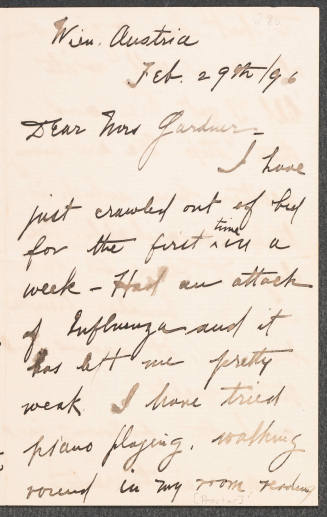 Wien. Austria
Feb. 29th/96
Dear Mrs Gardner -
I have
just crawled out of bed
for the first time in a
week - Had an attack
of Influenza and it
has left me pretty
weak. I have tried
piano playing, walking
round in my room, reading